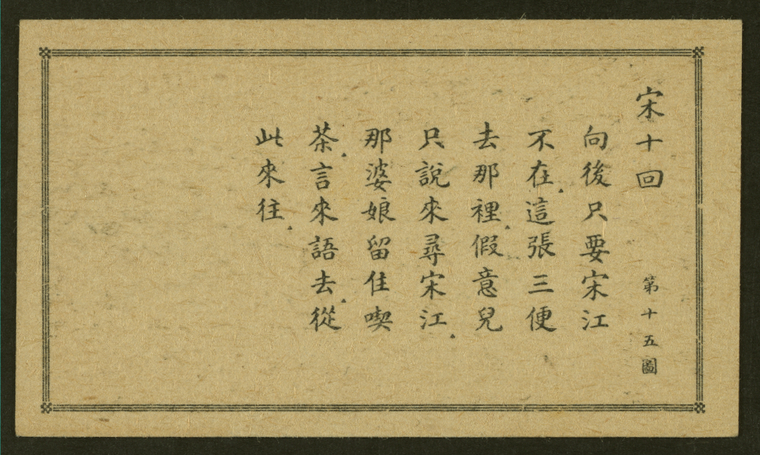 宋十回 第十五圖
向後只要宋江
不在。這張三便
去那裡。假意兒
只說來尋宋江。
那婆娘留住喫
茶。言來語去。從
此來往。